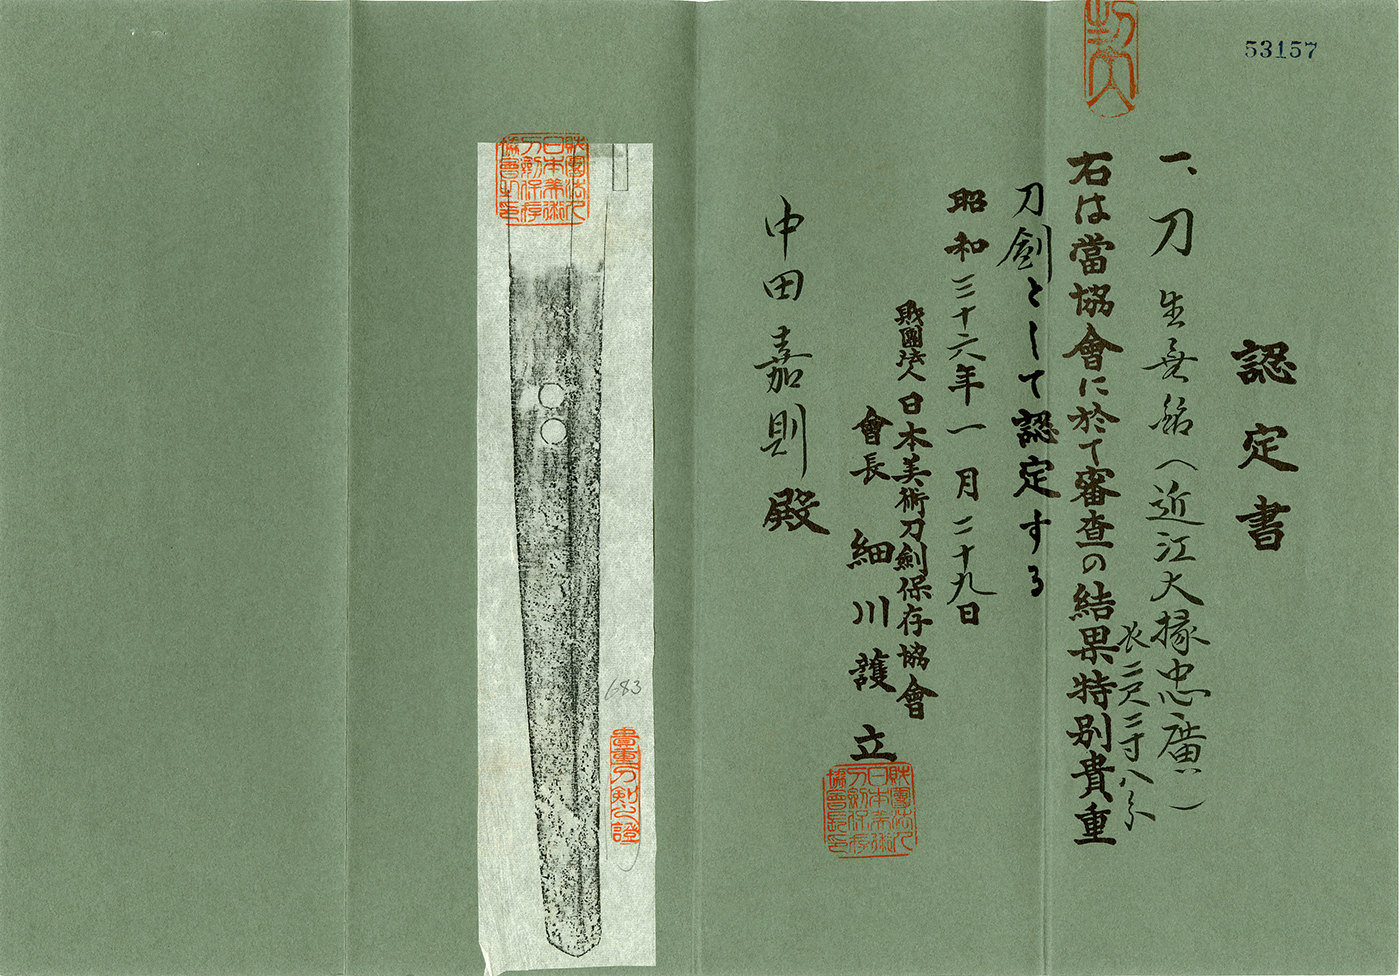 53157
認定書
一、刀 生無銘(近江大掾忠廣)
長二尺三寸八分
右は當協會に於て審査の結果特別貴重
刀劍として認定する
昭和三十六年一月二十九日
財團法人日本美術刀劍保存協會
會長 細川護立
中田嘉則殿
財團法人日本美術刀劍保存協會長印
財團法人日本美術刀劍保存協會之印
683
貴重刀剣之證